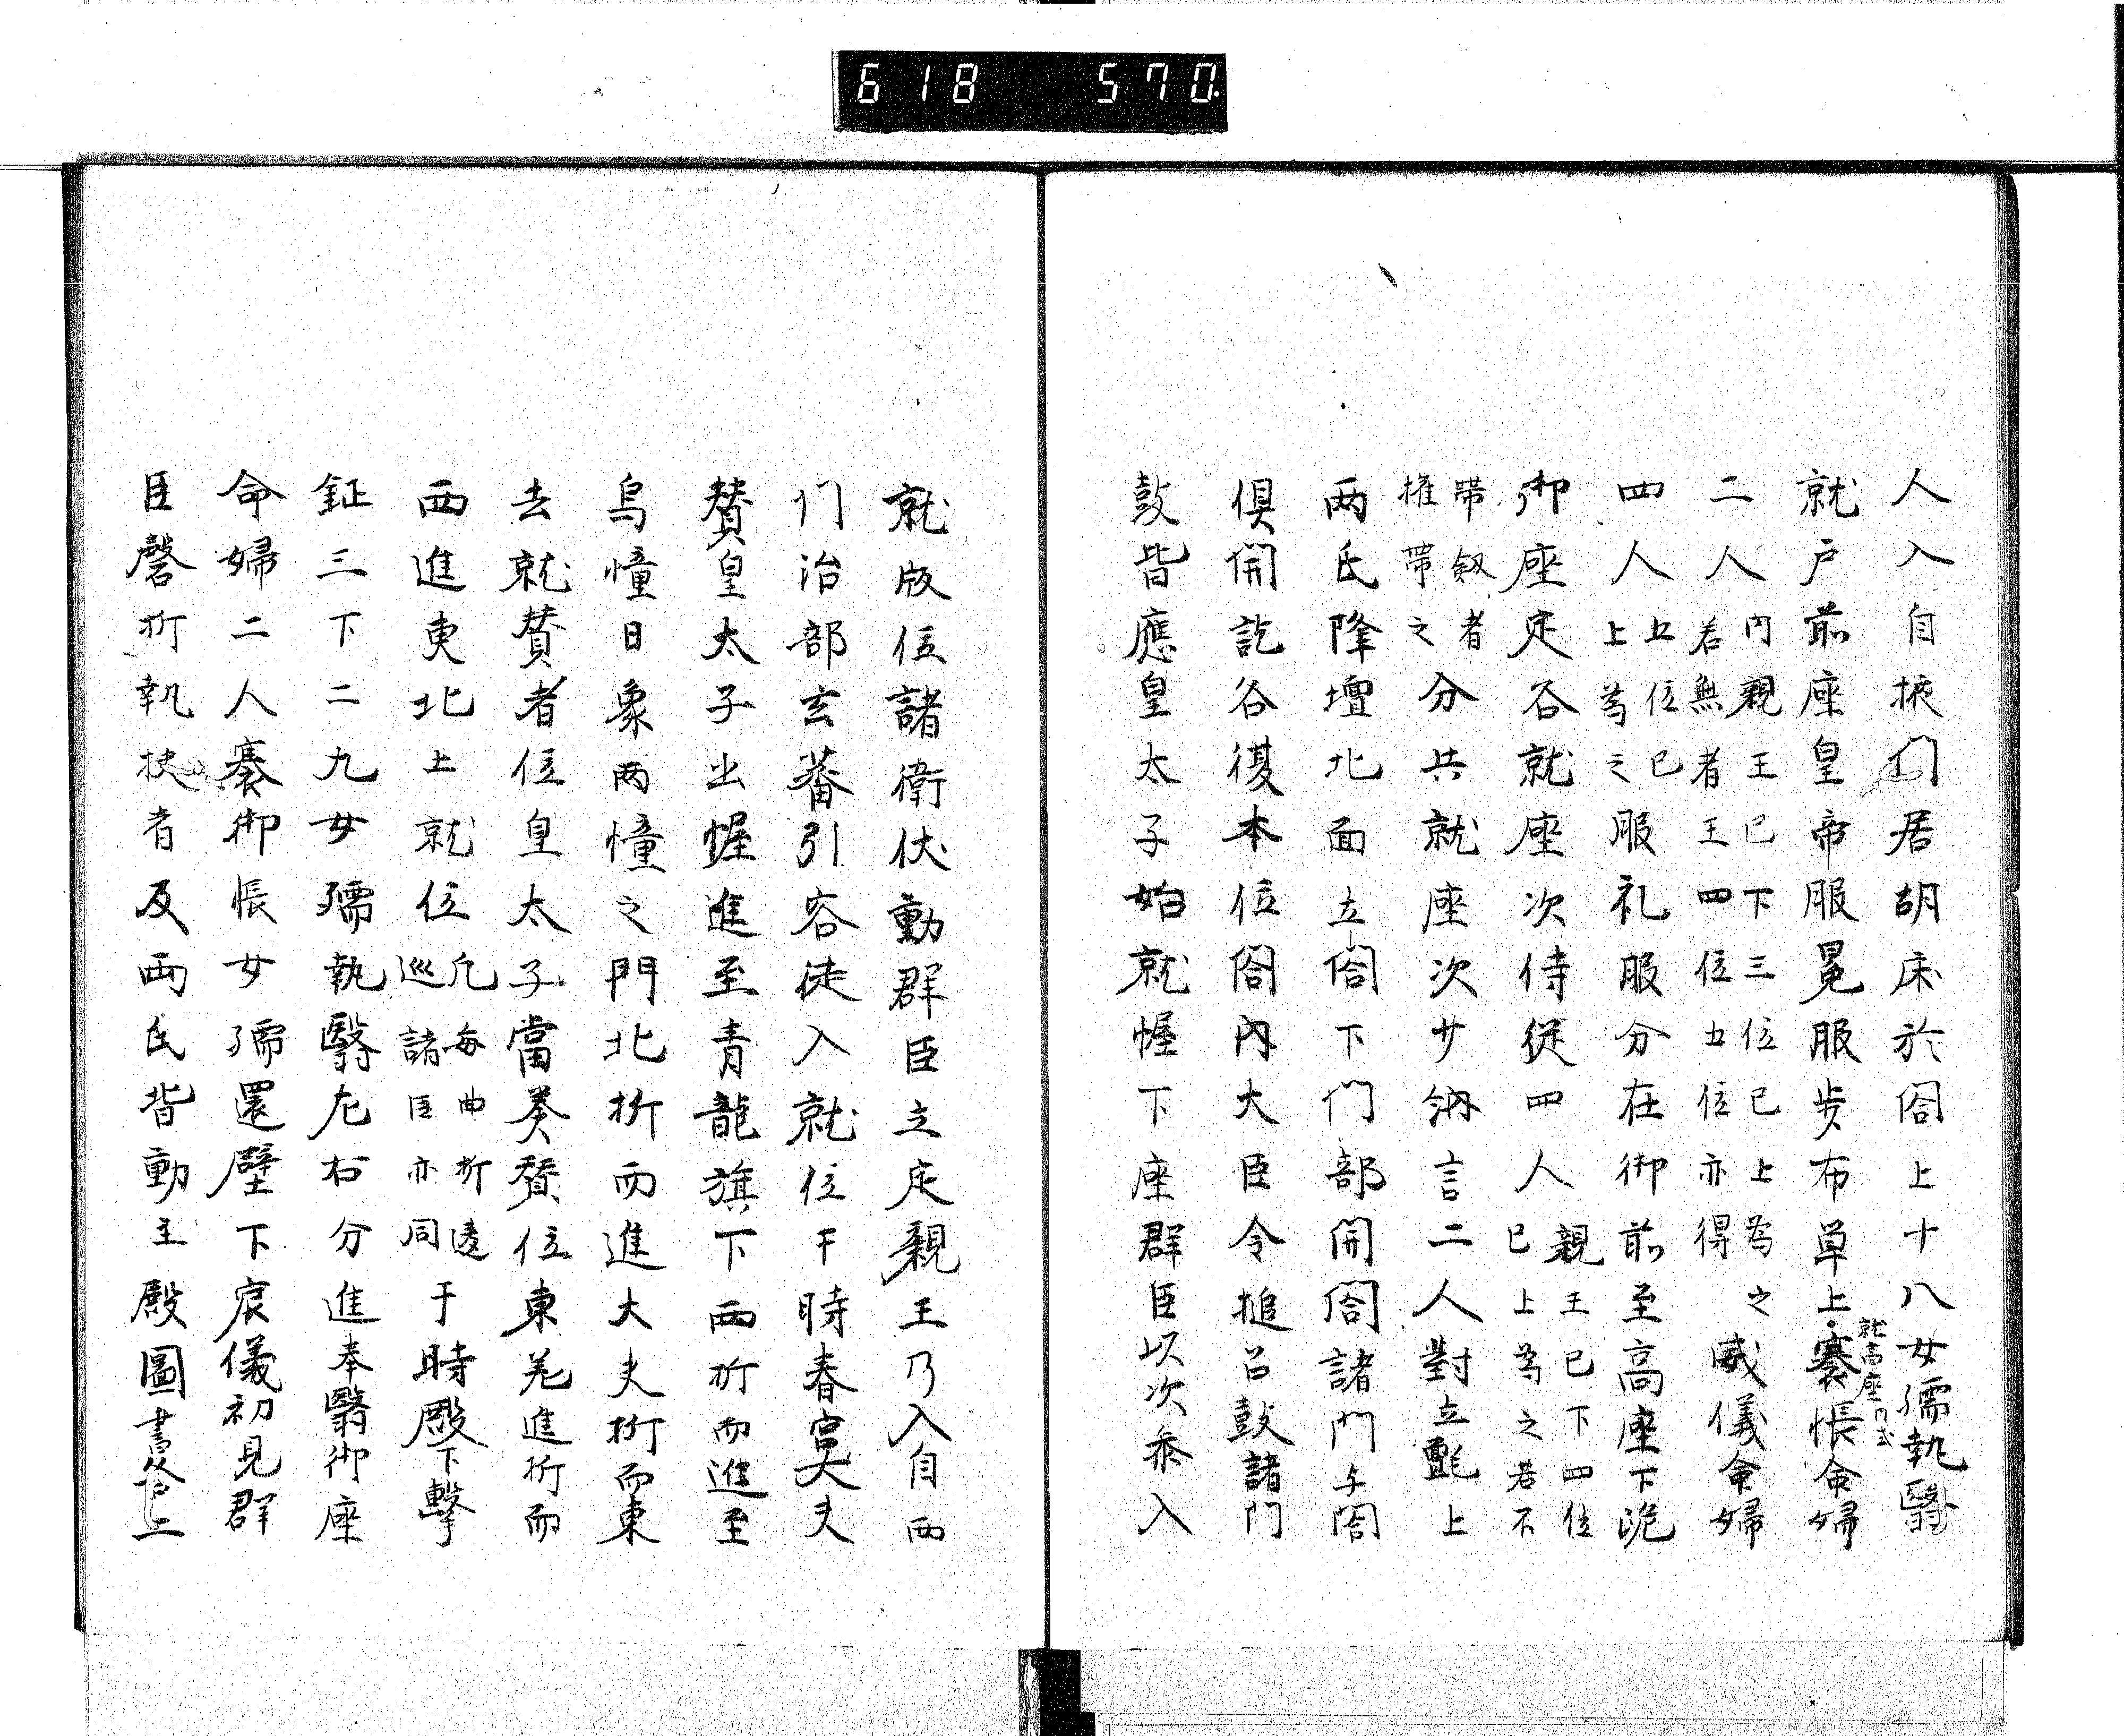 618 570
人入自掖门居胡床於閤上十八女孺執翳
就戸前座皇帝服冕服步布単上褰帳命婦
就高座
二人内親王已下三位已上為之若無者王四位五位亦得威儀命婦
四人五位已上為之服礼服分在御前至高座下
御座定各就座次侍従四人親王已下四位已上為之若不
帯釼者擢帯之分共就座次少納言二人對立氈上
両氏降壇北面立閤下门部開閤諸门与閤
倶開訖各復本位閤内大臣令搥召鼓諸门
鼓皆應皇太子始就幄下座群臣以次参入
就版位諸衛伏動群臣立定親王乃入自西
们治部玄蕃引容徒入就位干時春宮大夫
賛皇太子出幄進至青龍旗下西折而進至
烏憧日象両憧之門北折而進大夫折而東
去就賛者位皇太子當奏賛位東羌進折而
西進東北上就位凢毎曲折逺巡諸臣亦同于時殿下撃
鉦三下二九女孺執翳左右分進奉翳御座
命婦二人褰御帳女孺還壁下宸儀初見群
臣磬折執抶者及両氏皆動主殿圖書各二